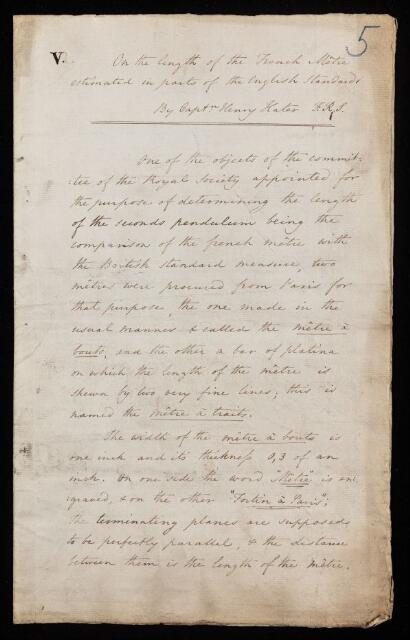 5
V. On the length of the French Mètre
estimated in parts of the English Standard.
By Captn Henry Kater F.R.S.
One of the objects of the commit-
-tee of the Royal Society appointed for
the purpose of determining the length
of the seconds pendulum being the
comparison of the french mètre with
the British standard measure, two
mètres were procured from Paris for
that purpose, the one made in the
usual manner & called the mètre à
bouts, and the other a bar of platina
on which the length of the mètre is
shewn by two very fine lines; this is
named the mètre à traits.
The width of the mètre à bouts is
one inch and its thickness 0,3 of an
inch. On one side the word "Mètre" is en-
-graved, & on the other "Fortin à Paris";
the terminating planes are supposed
to be perfectly parallel, & the distance
between them is the length of the mètre.